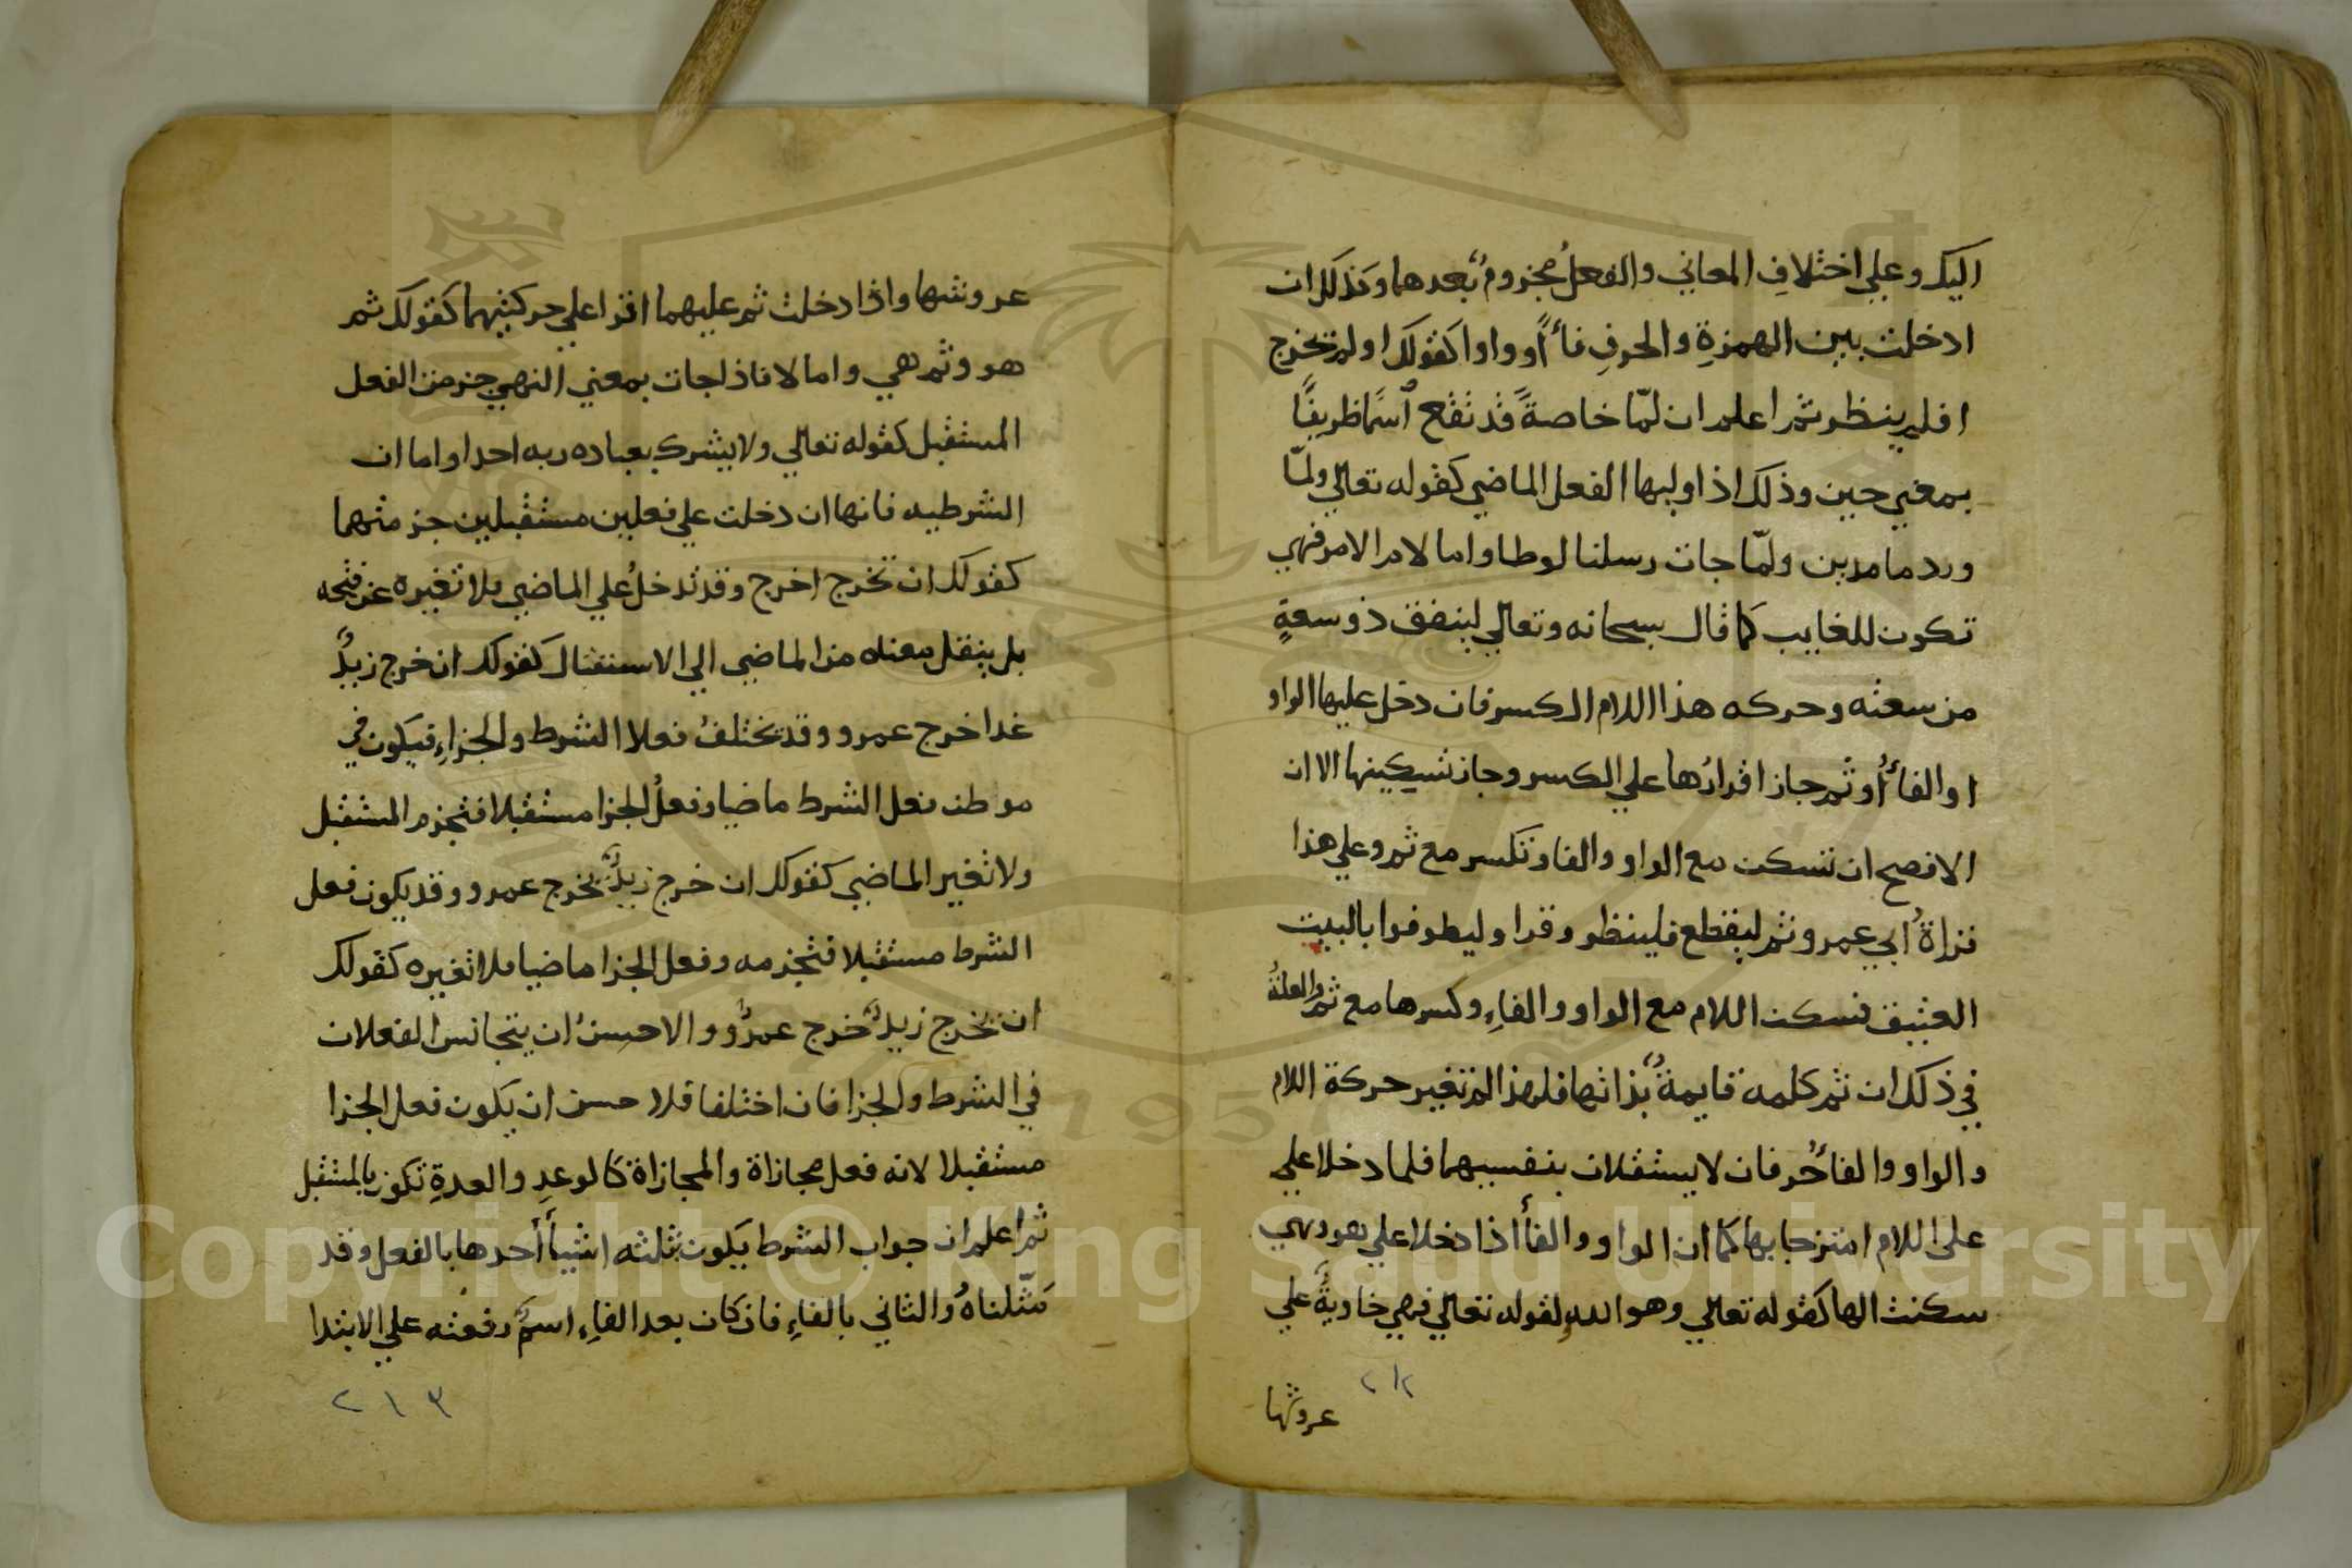 اليك وعلي اختلافِ المعاني والفعلُ مجزومٌ بعدهما وكذلك ان
ادخلت بين الهمزةِ والحرفِ فاءً أو واوا كقولك اولم تخرج
افلم ينظر ثم اعلم ان لمّا خاصةً قد تقع اسمًا ظريفًا
بمعني حين وذلك اذا وليها الفعل الماضي كقوله تعالي ولمّا
ورد ما مدين ولمّا جات رسلنا لوطا واما لام الامر فهي
تكون للغايب كما قال سبحانه وتعالي لينفق ذو سعةٍ
من سعته وحركه هذا اللام الكسر فان دخل عليها الواو
او الفاءُ أو ثم جاز اقرارُها علي الكسر وجاز تسكينها الا ان
الافصح ان تسكن مع الواو والفا وتكسر مع ثم وعلي هذا
قراةُ ابي عمرو ثم ليقطع فلينظر وقرا وليطوفوا بالبيت
العتيق فسكن اللام مع الواو والفاءِ وكسرها مع ثم والعلةُ
في ذلك ان ثم كلمه قايمةٌ بذاتها فلهذا لم تغير حركة اللام
والواو والفاءُ حرفان لا يستقلان بنفسيهما فلما دخلا علي
على اللام امتزجا بها كما ان الواو والفاء اذا دخلا علي هو وهي
سكنت الها كقوله تعالي وهو الله لقوله تعالي فهي خاويةٌ علي
٢١٢
عروشها
عروشها واذا دخلت ثم عليهما اقرا علي حركتيهما كقولك ثم
هو وثم هي واما لا فاذا جات بمعني النهي جزمت الفعل
المستقبل كقوله تعالي ولا يشرك بعباده ربه احدا واما ان
الشرطيه فانها ان دخلت علي فعلين مستقبلين جزمتهما
كقولك ان تخرج اخرج وقد تدخلُ علي الماضي بلا تغيره عن فتحه
بل ينقل معناه من الماضي الي الاستقبال كقولك ان خرج زيدٌ
غدا خرج عمرو وقد تختلفُ فعلا الشرط والجزاءِ فيكون في
موطن فعل الشرط ماضيا وفعلُ الجزا مستقبلا فتجزم المستقبل
ولا تغير الماضي كقولك ان خرج زيدٌ يخرج عمرو وقد يكون فعل
الشرط مستقبلا فتجزمه وفعل الجزا ماضيا فلا تغيره كقولك
ان يخرج زيدٌ خرج عمرٌو والاحسنُ ان يتجانس الفعلان
في الشرط والجزا فان اختلفا فلا حسن ان يكون فعل الجزا
مستقبلا لانه فعل مجازاة والمجازاة كالوعدِ والعدةِ تكون بالمستقبل
ثم اعلم ان جواب الشرط يكون بثلثه اشياءَ أحدها بالفعل وقد
مثّلناهُ والثاني بالفاءِ فان كان بعد الفاءِ اسمٌ رفعته علي الابتدا
٢١٣
Copyright © King Saud University
1957